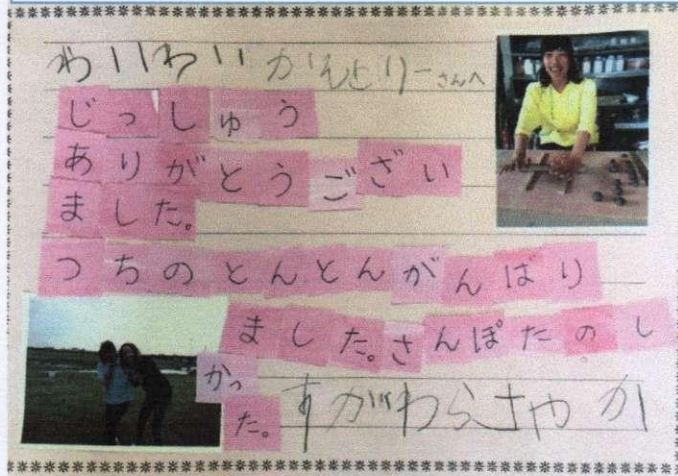 わいわいかんとりーさんへ
じっしゅう
ありがとうござい
ました。
つちのとんとんがんばり
ました。さんぽたのし
かっ
た。
すがわらさやか